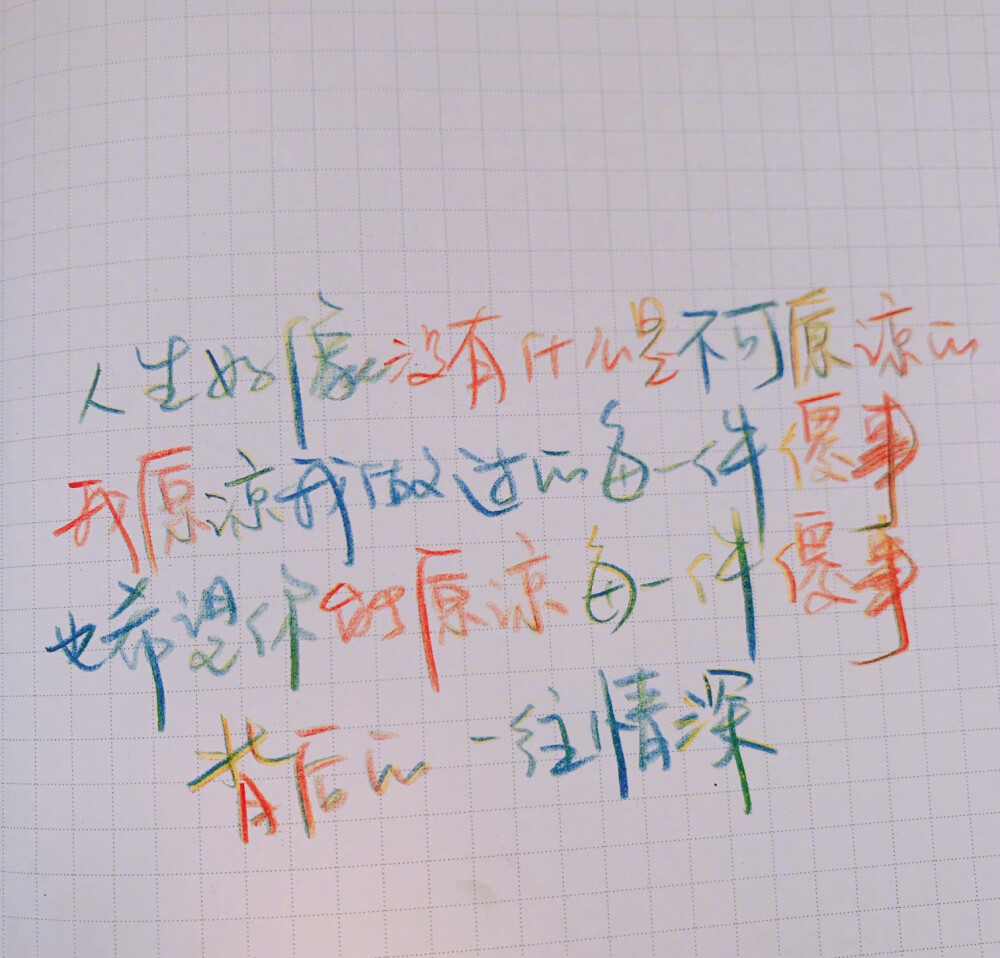 人生好像没有什么是不可原谅的
我原谅我做过的每一件傻事
也希望你能原谅每一件傻事
背后的一往情深